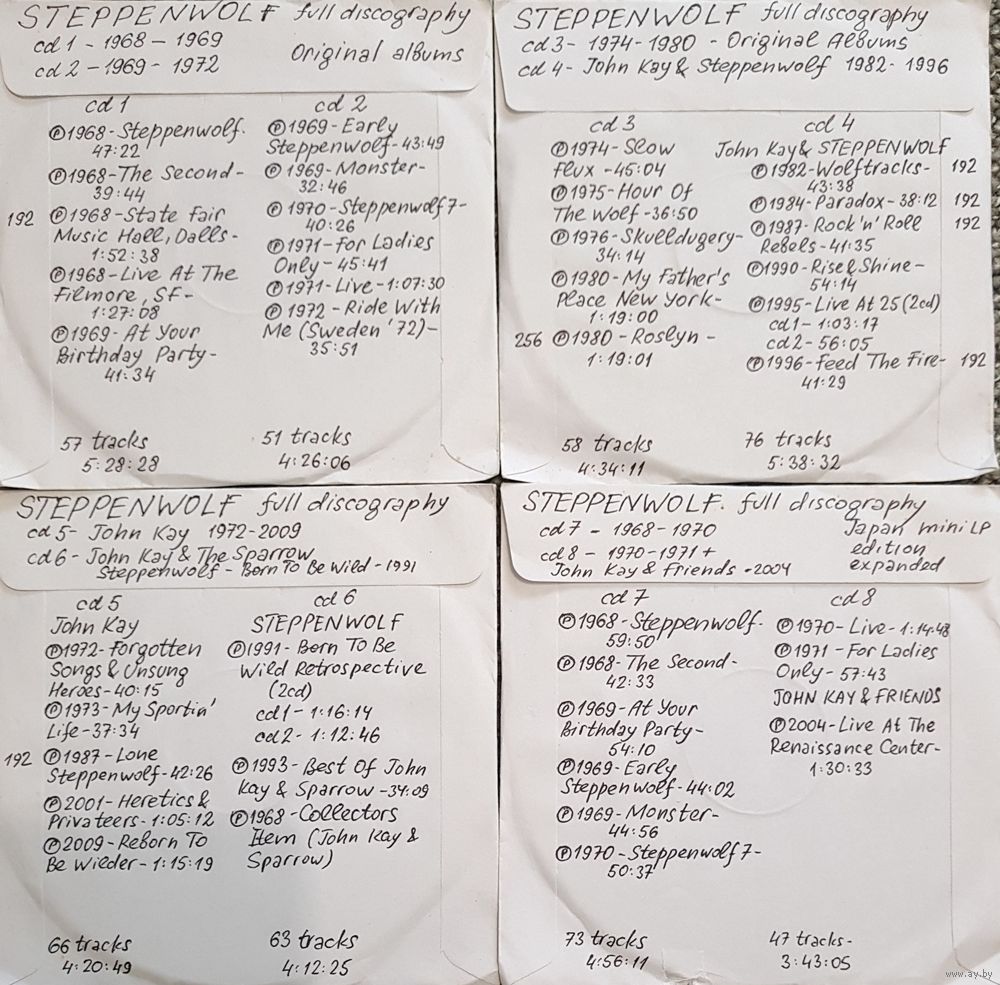 STEPPENWOLF full discography
cd 1 - 1968 - 1969
cd 2 - 1969 - 1972
Original albums
cd 1
Ⓟ1968-Steppenwolf.
47:22
Ⓟ1968-The Second-
39:44
192 Ⓟ1968-State Fair
Music Hall, Dalls-
1:52:38
Ⓟ1968-Live At The
Filmore, SF-
1:27:08
Ⓟ1969-At Your
Birthday Party-
41:34
57 tracks
5:28:28
cd 2
Ⓟ1969-Early
Steppenwolf-43:49
Ⓟ1969-Monster-
32:46
Ⓟ1970-Steppenwolf7-
40:26
Ⓟ1971-For Ladies
Only-45:41
Ⓟ1971-Live-1:07:30
Ⓟ1972-Ride With
Me (Sweden '72)-
35:51
51 tracks
4:26:06
STEPPENWOLF full discography
cd 3- 1974-1980 - Original Albums
cd 4- John Kay & Steppenwolf 1982-1996
cd 3
Ⓟ1974-Slow
Flux-45:04
Ⓟ1975-Hour Of
The Wolf-36:50
Ⓟ1976-Skulldugery-
34:14
Ⓟ1980-My Father's
Place New York-
1:19:00
256 Ⓟ1980-Roslyn-
1:19:01
58 tracks
4:34:11
cd 4
John Kay & STEPPENWOLF
Ⓟ1982-Wolftracks- 192
43:38
Ⓟ1984-Paradox-38:12 192
Ⓟ1987-Rock'n'Roll 192
Rebels-41:35
Ⓟ1990-Rise & Shine-
54:14
Ⓟ1995-Live At 25(2cd)
cd1-1:03:17
cd2-56:05
Ⓟ1996-Feed The Fire- 192
41:29
76 tracks
5:38:32
STEPPENWOLF full discography
cd 5- John Kay 1972-2009
cd 6- John Kay & The Sparrow
Steppenwolf - Born To Be Wild-1991
cd 5
John Kay
Ⓟ1972-Forgotten
Songs & Unsung
Heroes-40:15
Ⓟ1973-My Sportin'
Life-37:34
192 Ⓟ1987-Lone
Steppenwolf-42:26
Ⓟ2001-Heretics &
Privateers-1:05:12
Ⓟ2009-Reborn To
Be Wilder-1:15:19
66 tracks
4:20:49
cd 6
STEPPENWOLF
Ⓟ1991-Born To Be
Wild Retrospective
(2cd)
cd1-1:16:14
cd2-1:12:46
Ⓟ1993-Best Of John
Kay & Sparrow-34:09
Ⓟ1968-Collectors
Item (John Kay &
Sparrow)
63 tracks
4:12:25
STEPPENWOLF. full discography
cd 7 - 1968-1970
cd 8 - 1970-1971 +
John Kay & Friends -2004
Japan miniLP
edition
expanded
cd 7
Ⓟ1968-Steppenwolf-
59:50
Ⓟ1968-The Second-
42:33
Ⓟ1969-At Your
Birthday Party-
54:10
Ⓟ1969-Early
Steppenwolf-44:02
Ⓟ1969-Monster-
44:56
Ⓟ1970-Steppenwolf7-
50:37
73 tracks
4:56:11
cd 8
Ⓟ1970-Live-1:14:48
Ⓟ1971-For Ladies
Only-57:43
JOHN KAY & FRIENDS
Ⓟ2004-Live At The
Renaissance Center-
1:30:33
47 tracks-
3:43:05
www.ay.by